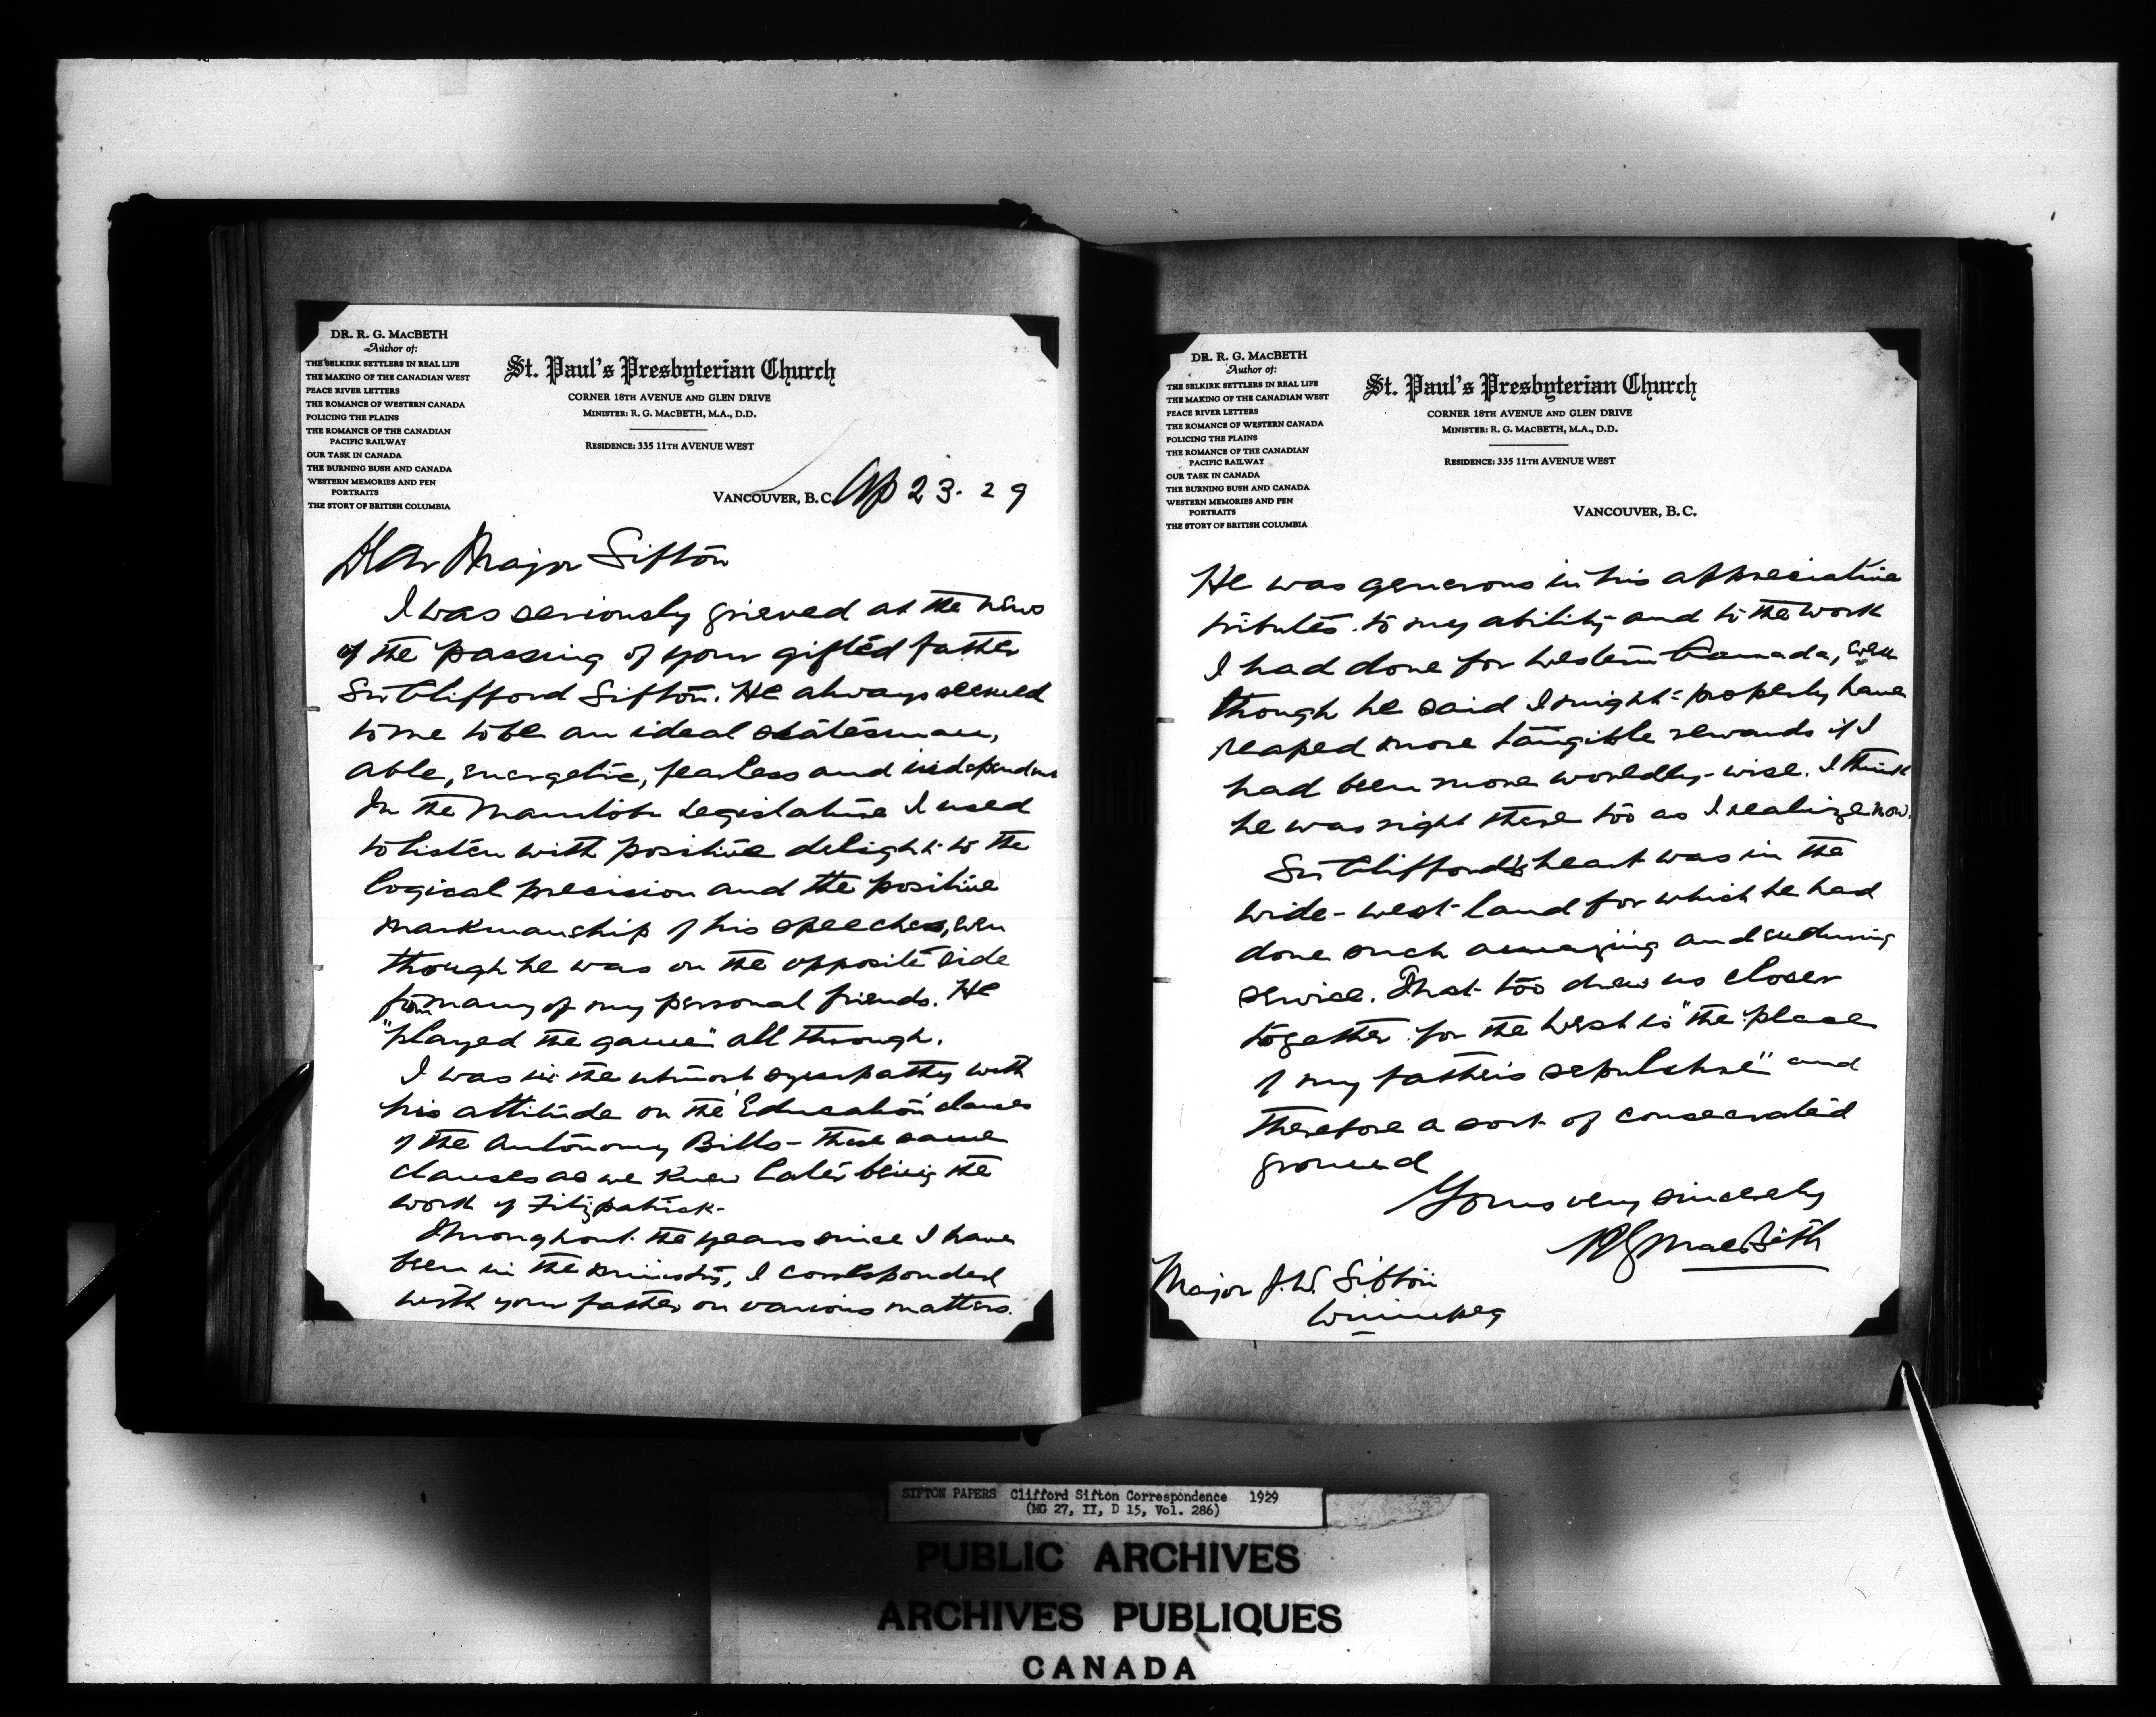 DR. R. G. MACBETH
Author of:
THE SELKIRK SETTLERS IN REAL LIFE
THE MAKING OF THE CANADIAN WEST
PEACE RIVER LETTERS
THE ROMANCE OF WESTERN CANADA
POLICING THE PLAINS
THE ROMANCE OF THE CANADIAN
PACIFIC RAILWAY
OUR TASK IN CANADA
THE BURNING BUSH AND CANADA
WESTERN MEMORIES AND PEN
PORTRAITS
THE STORY OF BRITISH COLUMBIA
St. Paul's Presbyterian Church
CORNER 18TH AVENUE AND GLEN DRIVE
MINISTER: R. G. MACBETH, M.A., D.D.
RESIDENCE: 335 11TH AVENUE WEST
VANCOUVER, B.C. Ap 23. 29
Dear Major Sifton
I was seriously grieved at the news
of the passing of your gifted father
Sir Clifford Sifton. He always seemed
to me to be an ideal statesman,
able, energetic, fearless and independent
In the Manitoba Legislature I used
to listen with positive delight to the
logical precision and the positive
markmanship of his speeches, even
though he was on the opposite side
from many of my personal friends. He
"played the game" all through.
I was in the utmost sympathy with
his attitude on the 'Education' clauses
of the Autonomy Bills - these same
clauses as we knew later being the
work of Fitzpatrick.
Throughout the years since I have
been in the ministry, I corresponded
with your father on various matters.
DR. R. G. MACBETH
Author of:
THE SELKIRK SETTLERS IN REAL LIFE
THE MAKING OF THE CANADIAN WEST
PEACE RIVER LETTERS
THE ROMANCE OF WESTERN CANADA
POLICING THE PLAINS
THE ROMANCE OF THE CANADIAN
PACIFIC RAILWAY
OUR TASK IN CANADA
THE BURNING BUSH AND CANADA
WESTERN MEMORIES AND PEN
PORTRAITS
THE STORY OF BRITISH COLUMBIA
St. Paul's Presbyterian Church
CORNER 18TH AVENUE AND GLEN DRIVE
MINISTER: R. G. MACBETH, M.A., D.D.
RESIDENCE: 335 11TH AVENUE WEST
VANCOUVER, B.C.
He was generous in his appreciative
tributes to my ability and to the work
I had done for Western Canada, even
though he said I might properly have
reaped more tangible rewards if I
had been more worldly-wise. I think
he was right there too as I realize now.
Sir Clifford's heart was in the
wide-west-land for which he had
done such amazing and enduring
service. That too drew us closer
together for the West is "the place
of my father's sepulchre" and
therefore a sort of consecrated
ground
Yours very sincerely
RG MacBeth
Major J.W. Sifton
Winnipeg
SIFTON PAPERS Clifford Sifton Correspondence 1929
(MG 27, II, D 15, Vol. 286)
PUBLIC ARCHIVES
ARCHIVES PUBLIQUES
CANADA